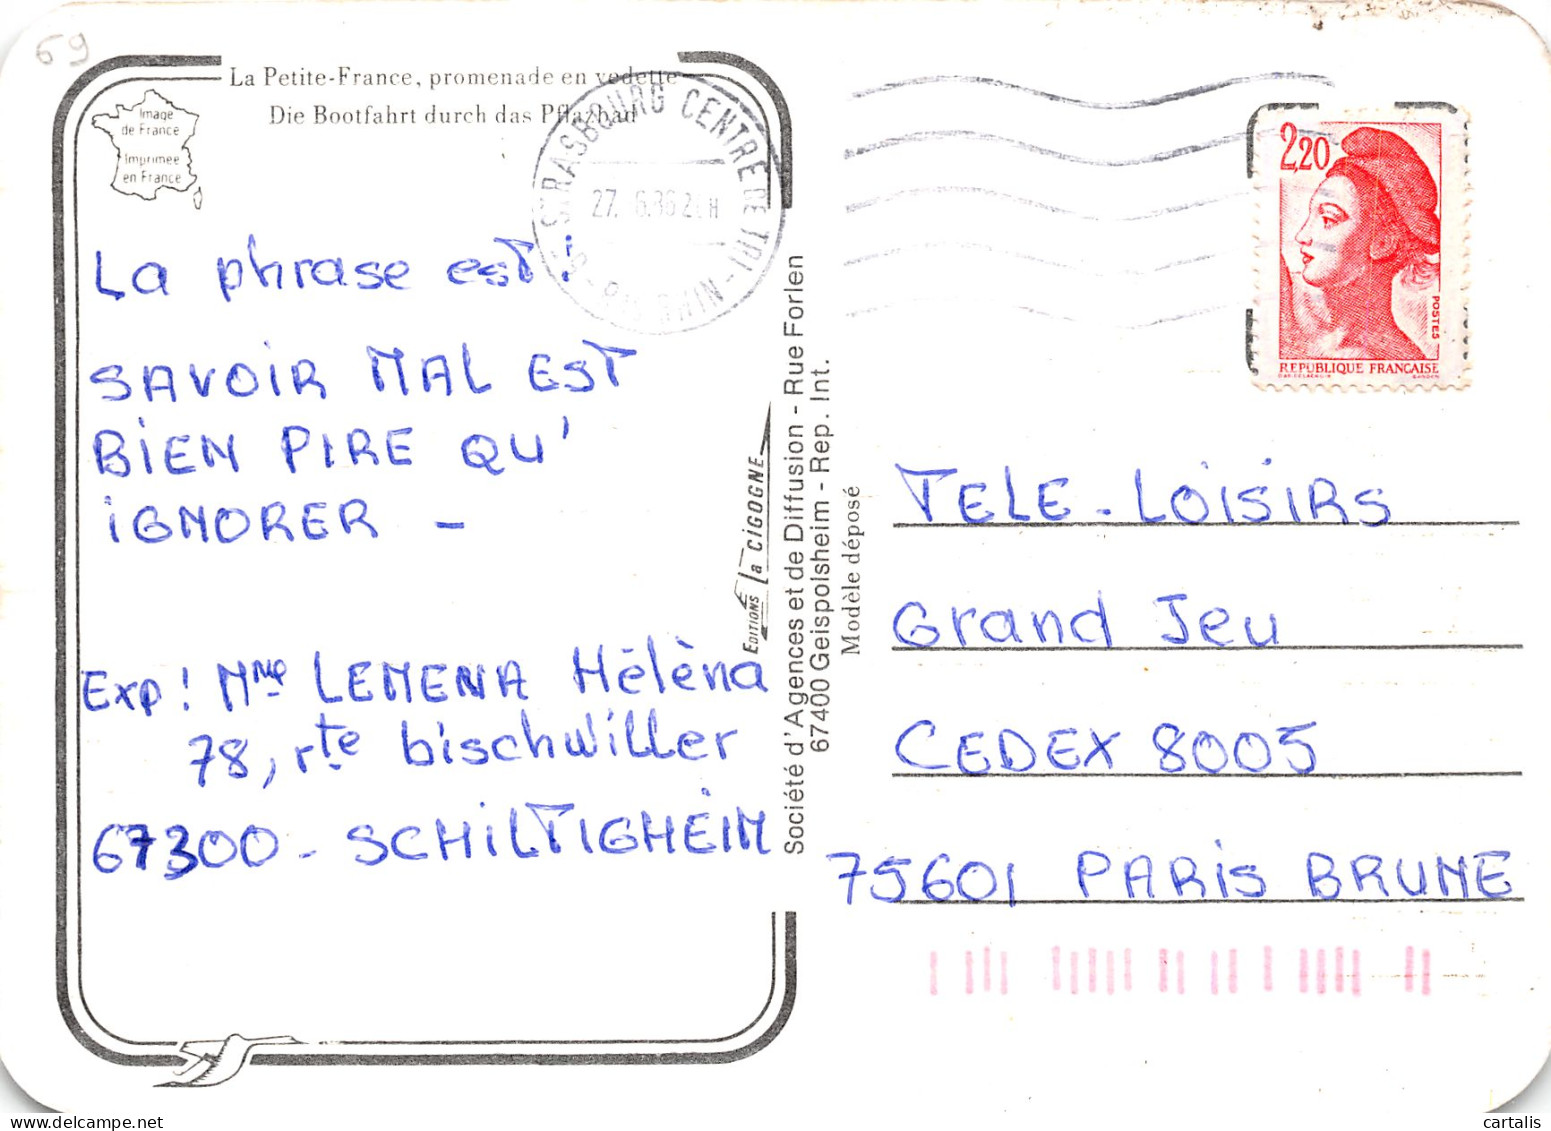 69
La Petite-France, promenade en vedette
Die Bootfahrt durch das Pflazbad
Image
de France
Imprimée
en France
STRASBOURG CENTRE DE TRI
RHIN
La phrase est :
SAVOIR MAL EST
BIEN PIRE QU'
IGNORER -
Exp! Mme LEMENA Hélèna
78, rte bischwiller
67300 - SCHILTIGHEIM
EDITIONS La CIGOGNE
Société d'Agences et de Diffusion - Rue Forlen
67400 Geispolsheim - Rep. Int.
Modèle déposé
2,20
POSTES
REPUBLIQUE FRANÇAISE
TELE-LOISIRS
Grand Jeu
CEDEX 8005
75601 PARIS BRUNE
delcampe.net
cartalis